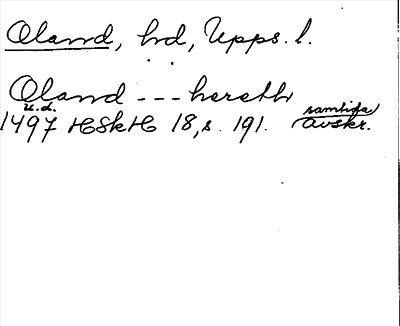 Oland, hd, Upps. l.
Oland --- hereth
u.d.
1497 HSkH 18, s. 191. samtida avskr.